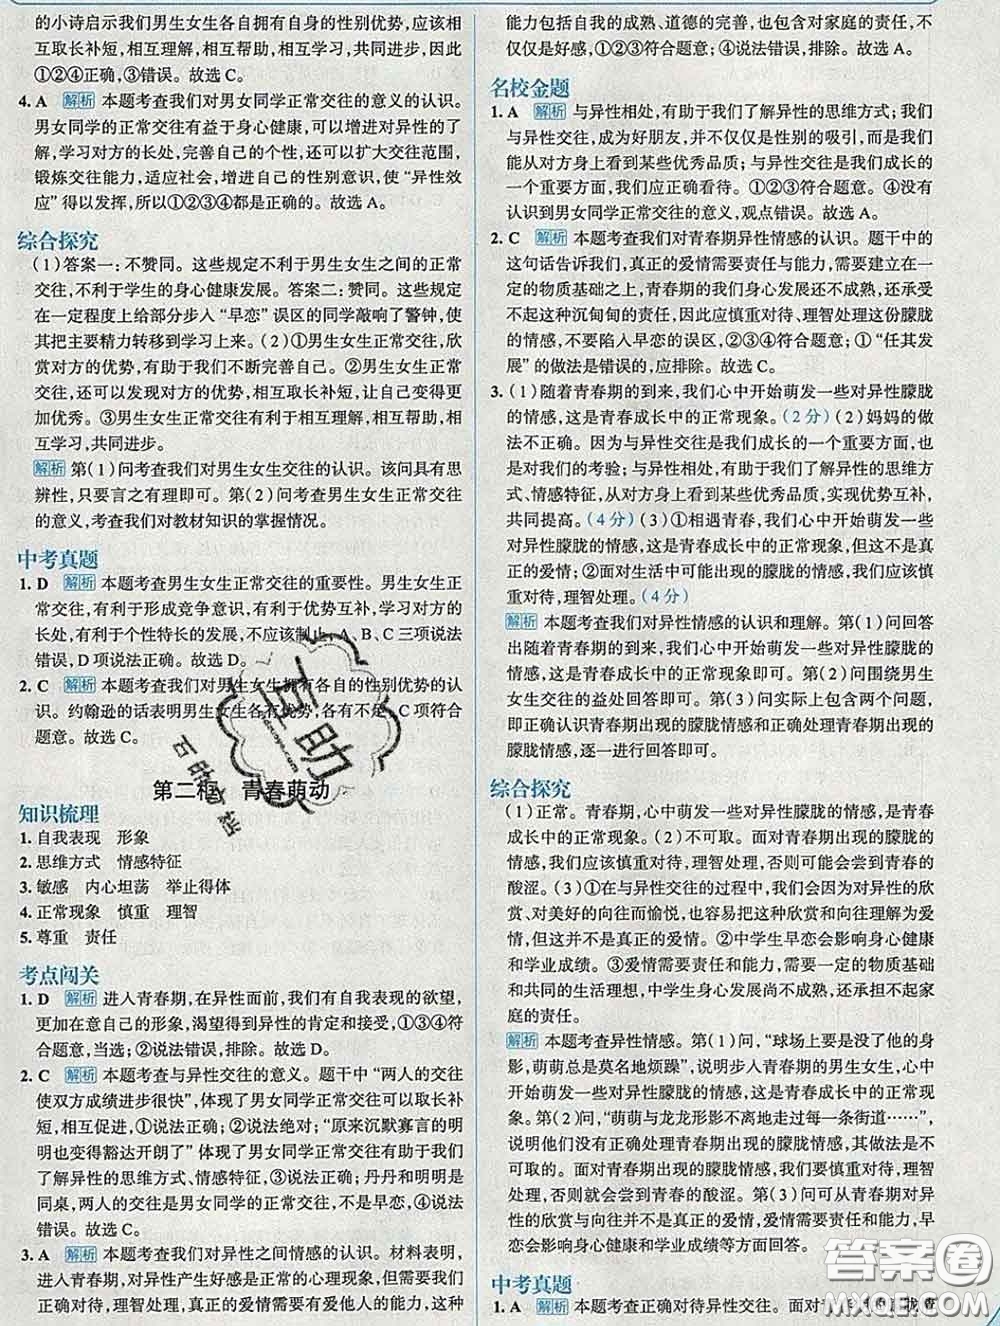 的小诗启示我们男生女生各自拥有自身的性别优势,应该相
互取长补短,相互理解,相互帮助,相互学习,共同进步,因此
①②④正确,③错误。故选 C。
4. A 解析 本题考查我们对男女同学正常交往的意义的认识。
男女同学的正常交往有益于身心健康,可以增进对异性的了
解,学习对方的长处,完善自己的个性,还可以扩大交往范围,
锻炼交往能力,适应社会,增进自己的性别意识,使“异性效
应”得以发挥,所以①②③④都是正确的。故选 A。
综合探究
(1)答案一:不赞同。这些规定不利于男生女生之间的正常
交往,不利于学生的身心健康发展。答案二:赞同。这些规定
在一定程度上给部分步入“早恋”误区的同学敲响了警钟,使
其把主要精力转移到学习上来。(2)①男生女生正常交往,欣
赏对方的优势,有助于我们不断完善自己。②男生女生正常
交往,还可以发现对方的优势,相互取长补短,让自己变得更
加优秀。③男生女生正常交往有利于相互理解,相互帮助,相
互学习,共同进步。
解析 第(1)问考查我们对男生女生交往的认识。该问具有思
辨性,只要言之有理即可。第(2)问考查男生女生正常交往
的意义,考查我们对教材知识的掌握情况。
中考真题
1. D 解析 本题考查男生女生正常交往的重要性。男生女生正
常交往,有利于形成竞争意识,有利于优势互补,学习对方的
长处,有利于个性特长的发展,不应该制止,A、B、C 三项说法
错误,D 项说法正确。故选 D。
2. C 解析 本题考查我们对男生女生拥有各自的性别优势的认
识。约翰逊的话表明男生女生各有优势,各有不足,C 项符合
题意。故选 C。
第二框 青春萌动
知识梳理
1. 自我表现 形象
2. 思维方式 情感特征
3. 敏感 内心坦荡 举止得体
4. 正常现象 慎重 理智
5. 尊重 责任
考点闯关
1. D 解析 进入青春期,在异性面前,我们有自我表现的欲望,
更加在意自己的形象,渴望得到异性的肯定和接受,①③④符
合题意,当选;②说法错误,排除。故选 D。
2. C 解析 本题考查与异性交往的意义。题干中“两人的交往
使双方成绩进步很快”,体现了男女同学正常交往有利于取长
补短,相互促进,①说法正确,②说法绝对;“原来沉默寡言的明
明也变得豁达开朗了”体现了男女同学正常交往有助于我们
了解异性的思维方式、情感特征,③说法正确;丹丹和明明是
同桌,两人的交往是男女同学的正常交往,不是早恋,④说法
错误。故选 C。
3. A 解析 本题考查我们对异性之间情感的认识。材料表明,
进入青春期,对异性产生好感是正常的心理现象,但我们要
正确对待,理智处理,真正的爱情需要有爱他人的能力,这种
能力包括自我的成熟、道德的完善,也包含对家庭的责任,不
仅仅是好感,①②③符合题意;④说法错误,排除。故选 A。
名校金题
1. A 解析 与异性相处,有助于我们了解异性的思维方式;我们
与异性交往,成为好朋友,并不仅仅是性别的吸引,而是我们
能从对方身上看到某些优秀品质;与异性交往是我们成长的
一个重要方面,我们应正确看待。①②③符合题意。④没有
认识到男女同学正常交往的意义,观点错误。故选 A。
2. C 解析 本题考查我们对青春期异性情感的认识。题干中的
这句话告诉我们,真正的爱情需要责任与能力,需要建立在一
定的物质基础之上,青春期的我们身心发展还不成熟,还承受
不起这种沉甸甸的责任,因此应慎重对待、理智处理这份朦胧
的情感,不要陷入早恋的误区,②③④符合题意;①“任其发
展”的做法是错误的,应排除。故选 C。
3. (1)随着青春期的到来,我们心中开始萌发一些对异性朦胧
的情感,这是青春成长中的正常现象。(2 分)(2)妈妈的做
法不正确。因为与异性交往是我们成长的一个重要方面,也
是对我们的考验;与异性相处,有助于我们了解异性的思维方
式、情感特征,从对方身上看到某些优秀品质,实现优势互补,
共同提高。(4 分)(3)①相遇青春,我们心中开始萌发一些
对异性朦胧的情感,这是青春成长中的正常现象,但这不是真
正的爱情;②面对生活中可能出现的朦胧的情感,我们应该慎
重对待,理智处理。(4 分)
解析 本题考查我们对异性情感的认识和理解。第(1)问回答
出随着青春期的到来,我们心中开始萌发一些对异性朦胧的
情感,这是青春成长中的正常现象即可。第(2)问围绕男生
女生交往的益处回答即可。第(3)问实际上包含两个问题,
即正确认识青春期出现的朦胧情感和正确处理青春期出现的
朦胧情感,逐一进行回答即可。
综合探究
(1)正常。青春期,心中萌发一些对异性朦胧的情感,是青春
成长中的正常现象。(2)不可取。面对青春期出现的朦胧情
感,我们应该慎重对待、理智处理,否则可能会尝到青春的
酸涩。(3)①在与异性交往的过程中,我们会因为对异性的欣
赏、对美好的向往而愉悦,也容易把这种欣赏和向往理解为爱
情,但这并不是真正的爱情。②中学生早恋会影响身心健康
和学业成绩。③爱情需要责任和能力,需要一定的物质基础
和共同的生活理想,中学生身心发展尚不成熟,还承担不起家
庭的责任。
解析 本题考查异性情感。第(1)问,“球场上要是没了他的身
影,萌萌总是莫名地烦躁”,说明步入青春期的男生女生,心中
开始萌发一些对异性朦胧的情感,这是青春成长中的正常现
象。第(2)问,“萌萌与龙龙形影不离地走过每一条街道……”,
说明他们没有正确处理青春期出现的朦胧情感,其做法是不
可取的。面对青春期出现的朦胧情感,我们要慎重对待,理智
处理,否则就会尝到青春的酸涩。第(3)问可从青春期对异
性的欣赏与向往并不是真正的爱情、爱情需要责任和能力、早
恋会影响身心健康和学业成绩等方面回答。
中考真题
1. A 解析 本题考查正确对待异性交往。面对
互助
答案圈
MXQE.COM